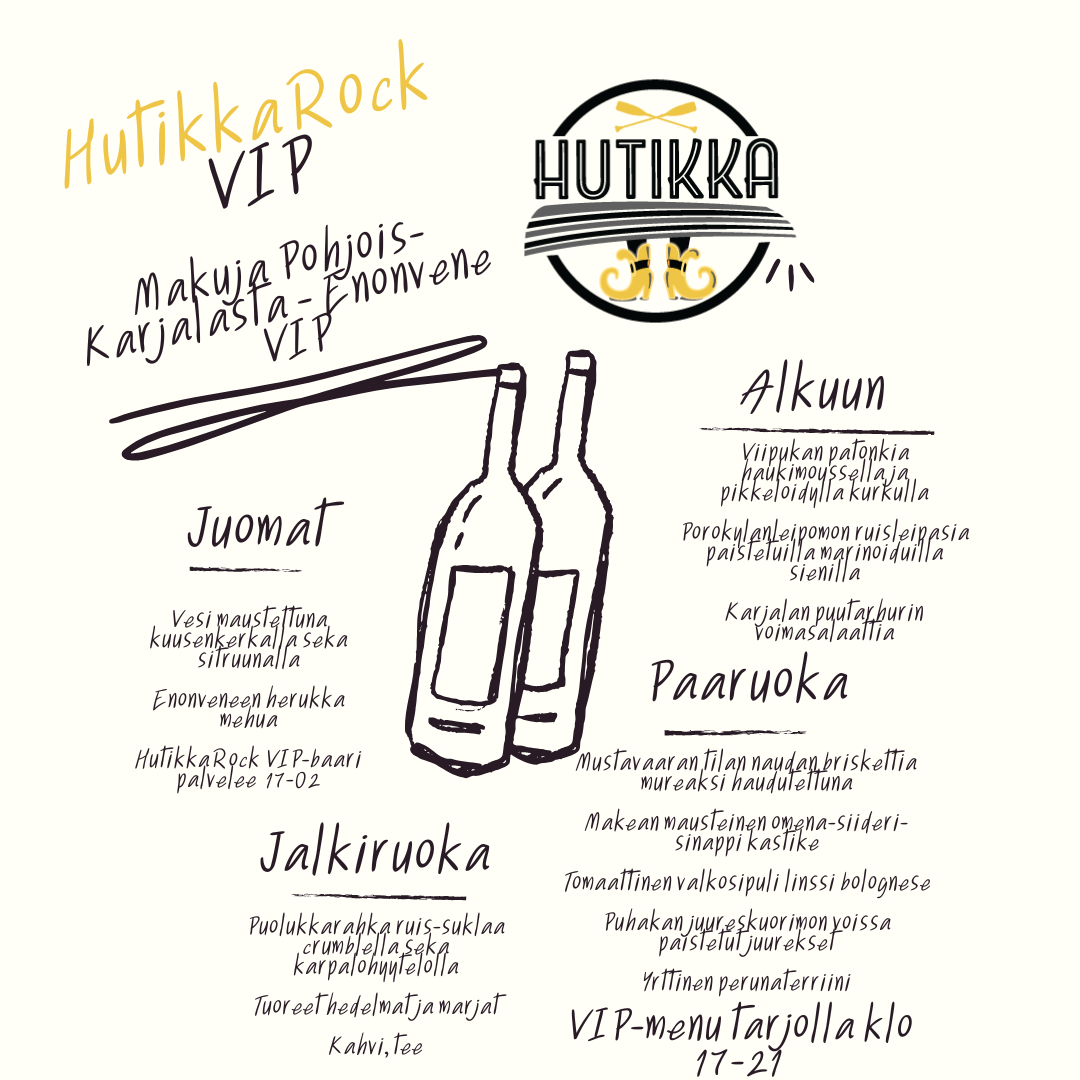 HutikkaRock
VIP
HUTIKKA
Makuja Pohjois-
Karjalasta - Enonvene
VIP
Alkuun
Viipukan patonkia
haukimoussella ja
pikkelöidyllä kurkulla
Porokylanleipomon ruisleipasia
paistetuilla marinoiduilla
sienilla
Karjalan puutarhurin
voimasalaattia
Juomat
Vesi maustettuna
kuusenkerkalla seka
sitruunalla
Enonveneen herukka
mehua
HutikkaRock VIP-baari
palvelee 17-02
Paaruoka
Mustavaaran tilan naudan briskettia
mureaksi haudutettuna
Makean mausteinen omena-siideri-
sinappi kastike
Tomaattinen valkosipuli linssi bolognese
Puhakan juureskuorimon voissa
paistetut juurekset
Yrttinen perunaterriini
VIP-menu tarjolla klo
17-21
Jalkiruoka
Puolukkarahka ruis-suklaa
crumblella seka
karpalohyytelolla
Tuoreet hedelmat ja marjat
Kahvi, tee